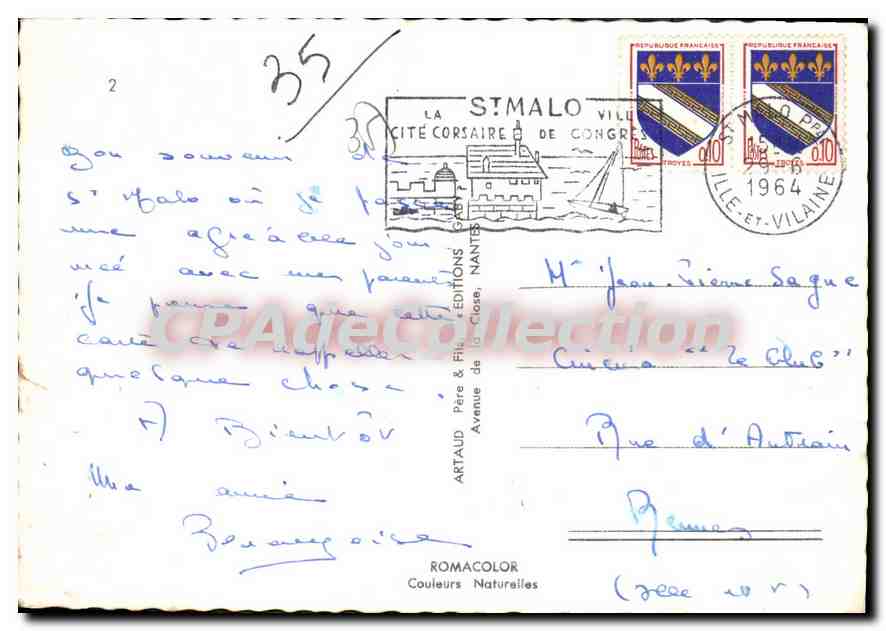 35
2
35
Bon souvenir de
St Malo où je passe
une agréable jour-
née avec mes parents
Je pense que cette
carte te rappeller
quelque chose.
A Bientôt
Une amie
LA ST MALO VILLE
CITÉ CORSAIRE DE CONGRES
REPUBLIQUE FRANÇAISE
POSTES 0,10
TROYES
REPUBLIQUE FRANÇAISE
POSTES 0,10
TROYES
ST MALO PPAL
29-6
1964
ILLE-ET-VILAINE
ARTAUD Père & Fils «EDITIONS GABY»
Avenue de la Close, NANTES
Mr Jean-Pierre Sague
Cinéma "Le Club"
Rue d'Antrain
Rennes
(Ille et V)
ROMACOLOR
Couleurs Naturelles
CPAdeCollection